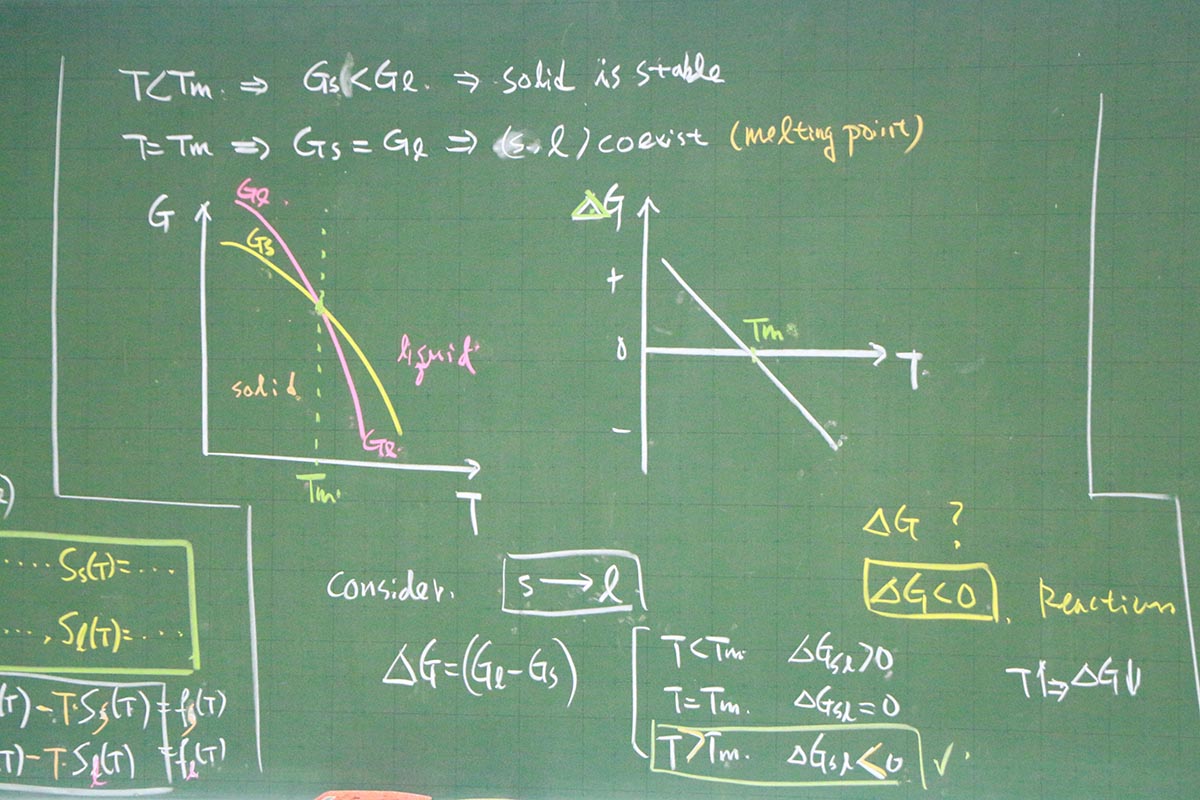 T<Tm. ⇒ Gs<Gl. ⇒ solid is stable
T=Tm ⇒ Gs=Gl ⇒ (s, l) coexist (melting point)
G
Gl.
Gs
solid
liquid
Gl.
Tm.
T
ΔG
+
0
-
Tm.
T
)
.... Ss(T)=...
..., Sl(T)=...
(T)-T·Ss(T)=fs(T)
(T)-T·Sl(T)=fl(T)
Consider. s → l
ΔG=(Gl-Gs)
T<Tm. ΔGsl>0
T=Tm. ΔGsl=0
T>Tm. ΔGsl<0 ✓.
ΔG ?
ΔG<0. Reaction
T↑⇒ΔG↓